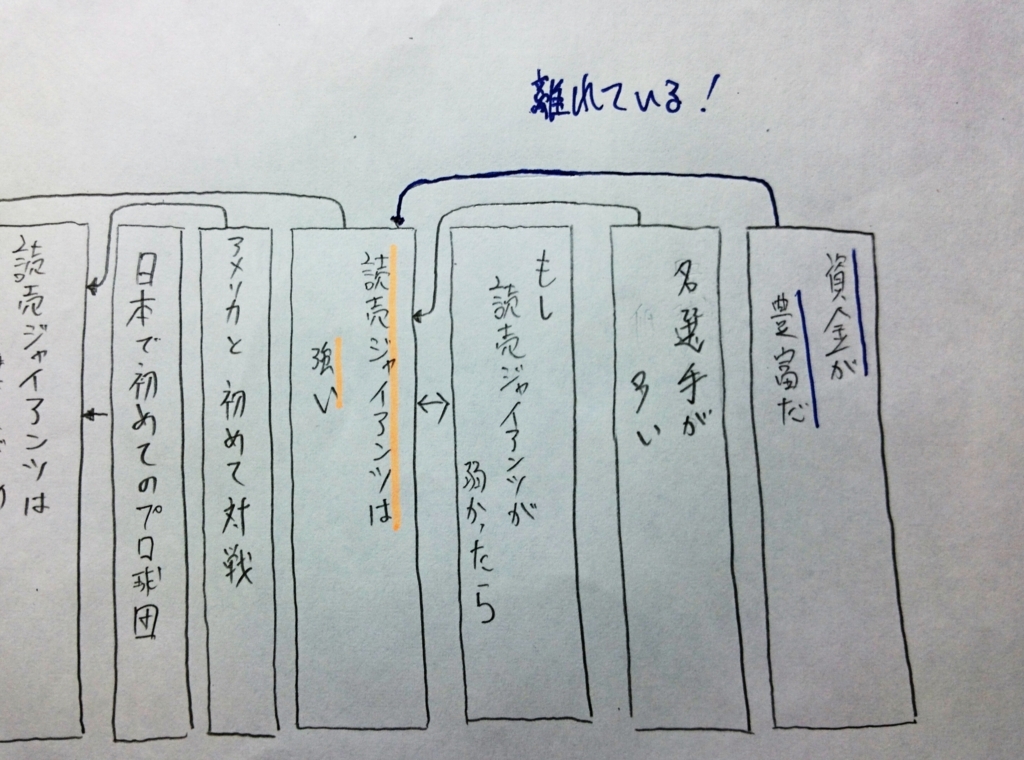 離れている！
資金が
豊富だ
名選手が
多い
もし
読売ジャイアンツが
弱かったら
読売ジャイアンツは
強い
アメリカと初めて対戦
日本で初めてのプロ球団
読売ジャイアンツは